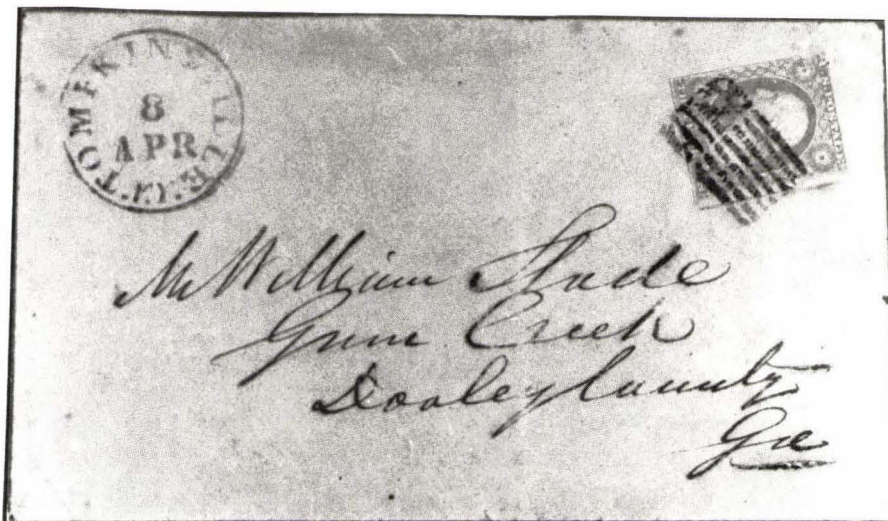 TOMPKINSVILLE KY.
8
APR
Mr William Slade
Gum Creek
Dooley County
Ga